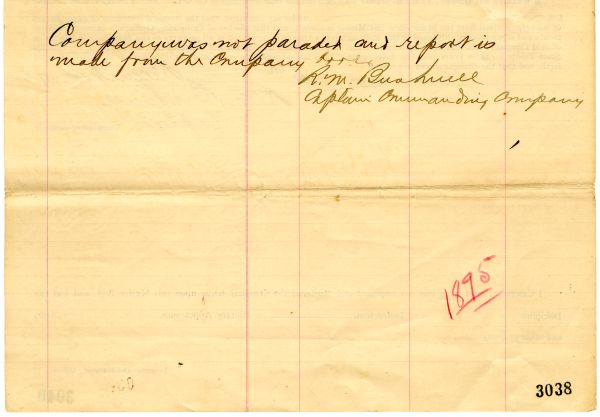 Company was not paraded and report is
made from the Company books
R. M. Bushnell
Captain Commanding Company
1895
3038